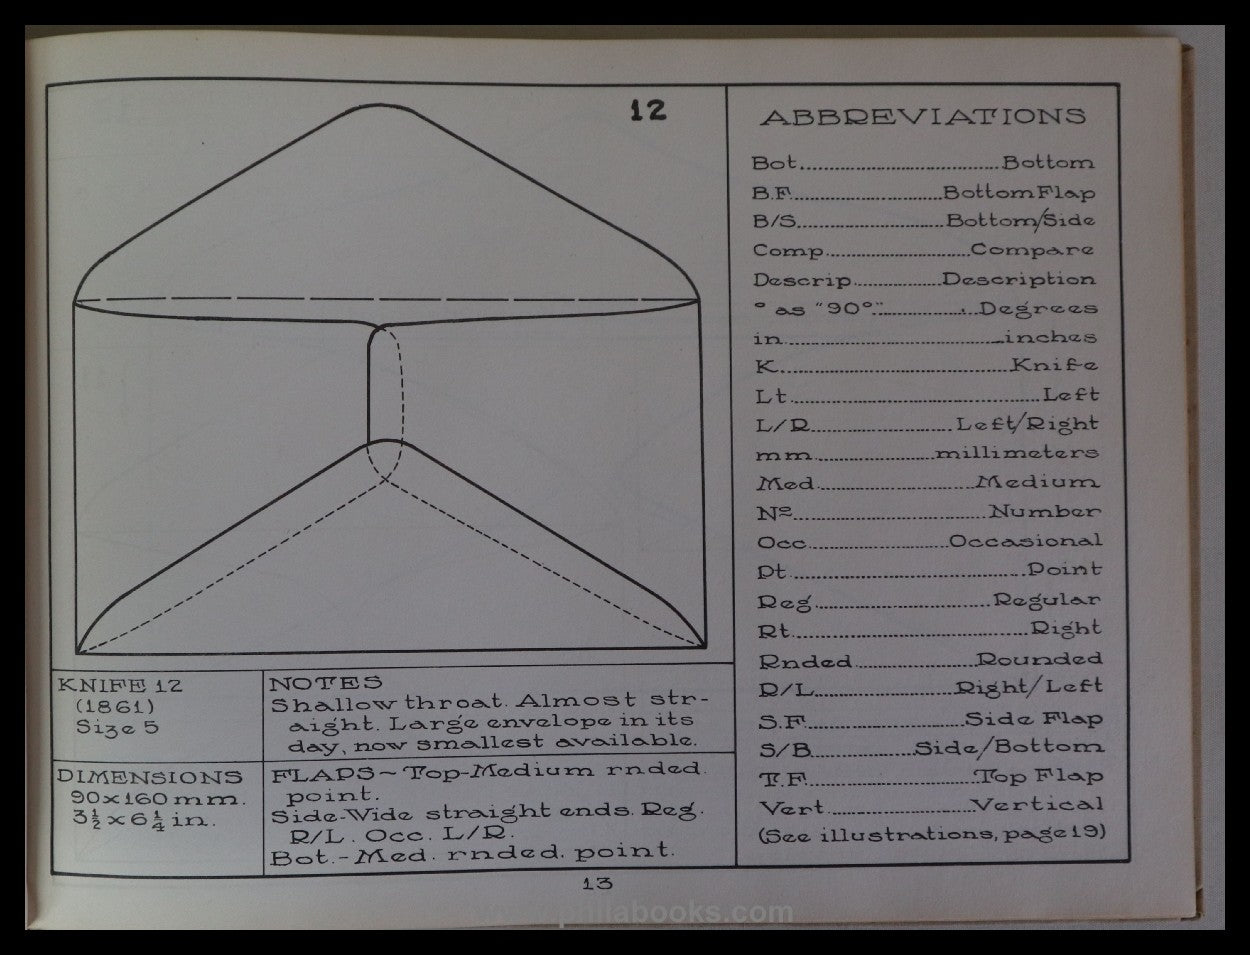 12
KNIFE 12
(1861)
Size 5
NOTES
Shallow throat. Almost str-
aight. Large envelope in its
day, now smallest available.
DIMENSIONS
90x160 mm.
3½ x 6¼ in.
FLAPS~Top-Medium rnded.
point.
Side-Wide straight ends. Reg.
R/L. Occ. L/R.
Bot.-Med. rnded. point.
ABBREVIATIONS
Bot....................Bottom
B.F....................Bottom Flap
B/S....................Bottom/Side
Comp....................Compare
Descrip....................Description
° as "90°"....................Degrees
in....................inches
K....................Knife
Lt....................Left
L/R....................Left/Right
mm....................millimeters
Med....................Medium
Nº....................Number
Occ....................Occasional
Pt....................Point
Reg....................Regular
Rt....................Right
Rnded....................Rounded
R/L....................Right/Left
S.F....................Side Flap
S/B....................Side/Bottom
T.F....................Top Flap
Vert....................Vertical
(See illustrations, page 19)
13
www.philabooks.com